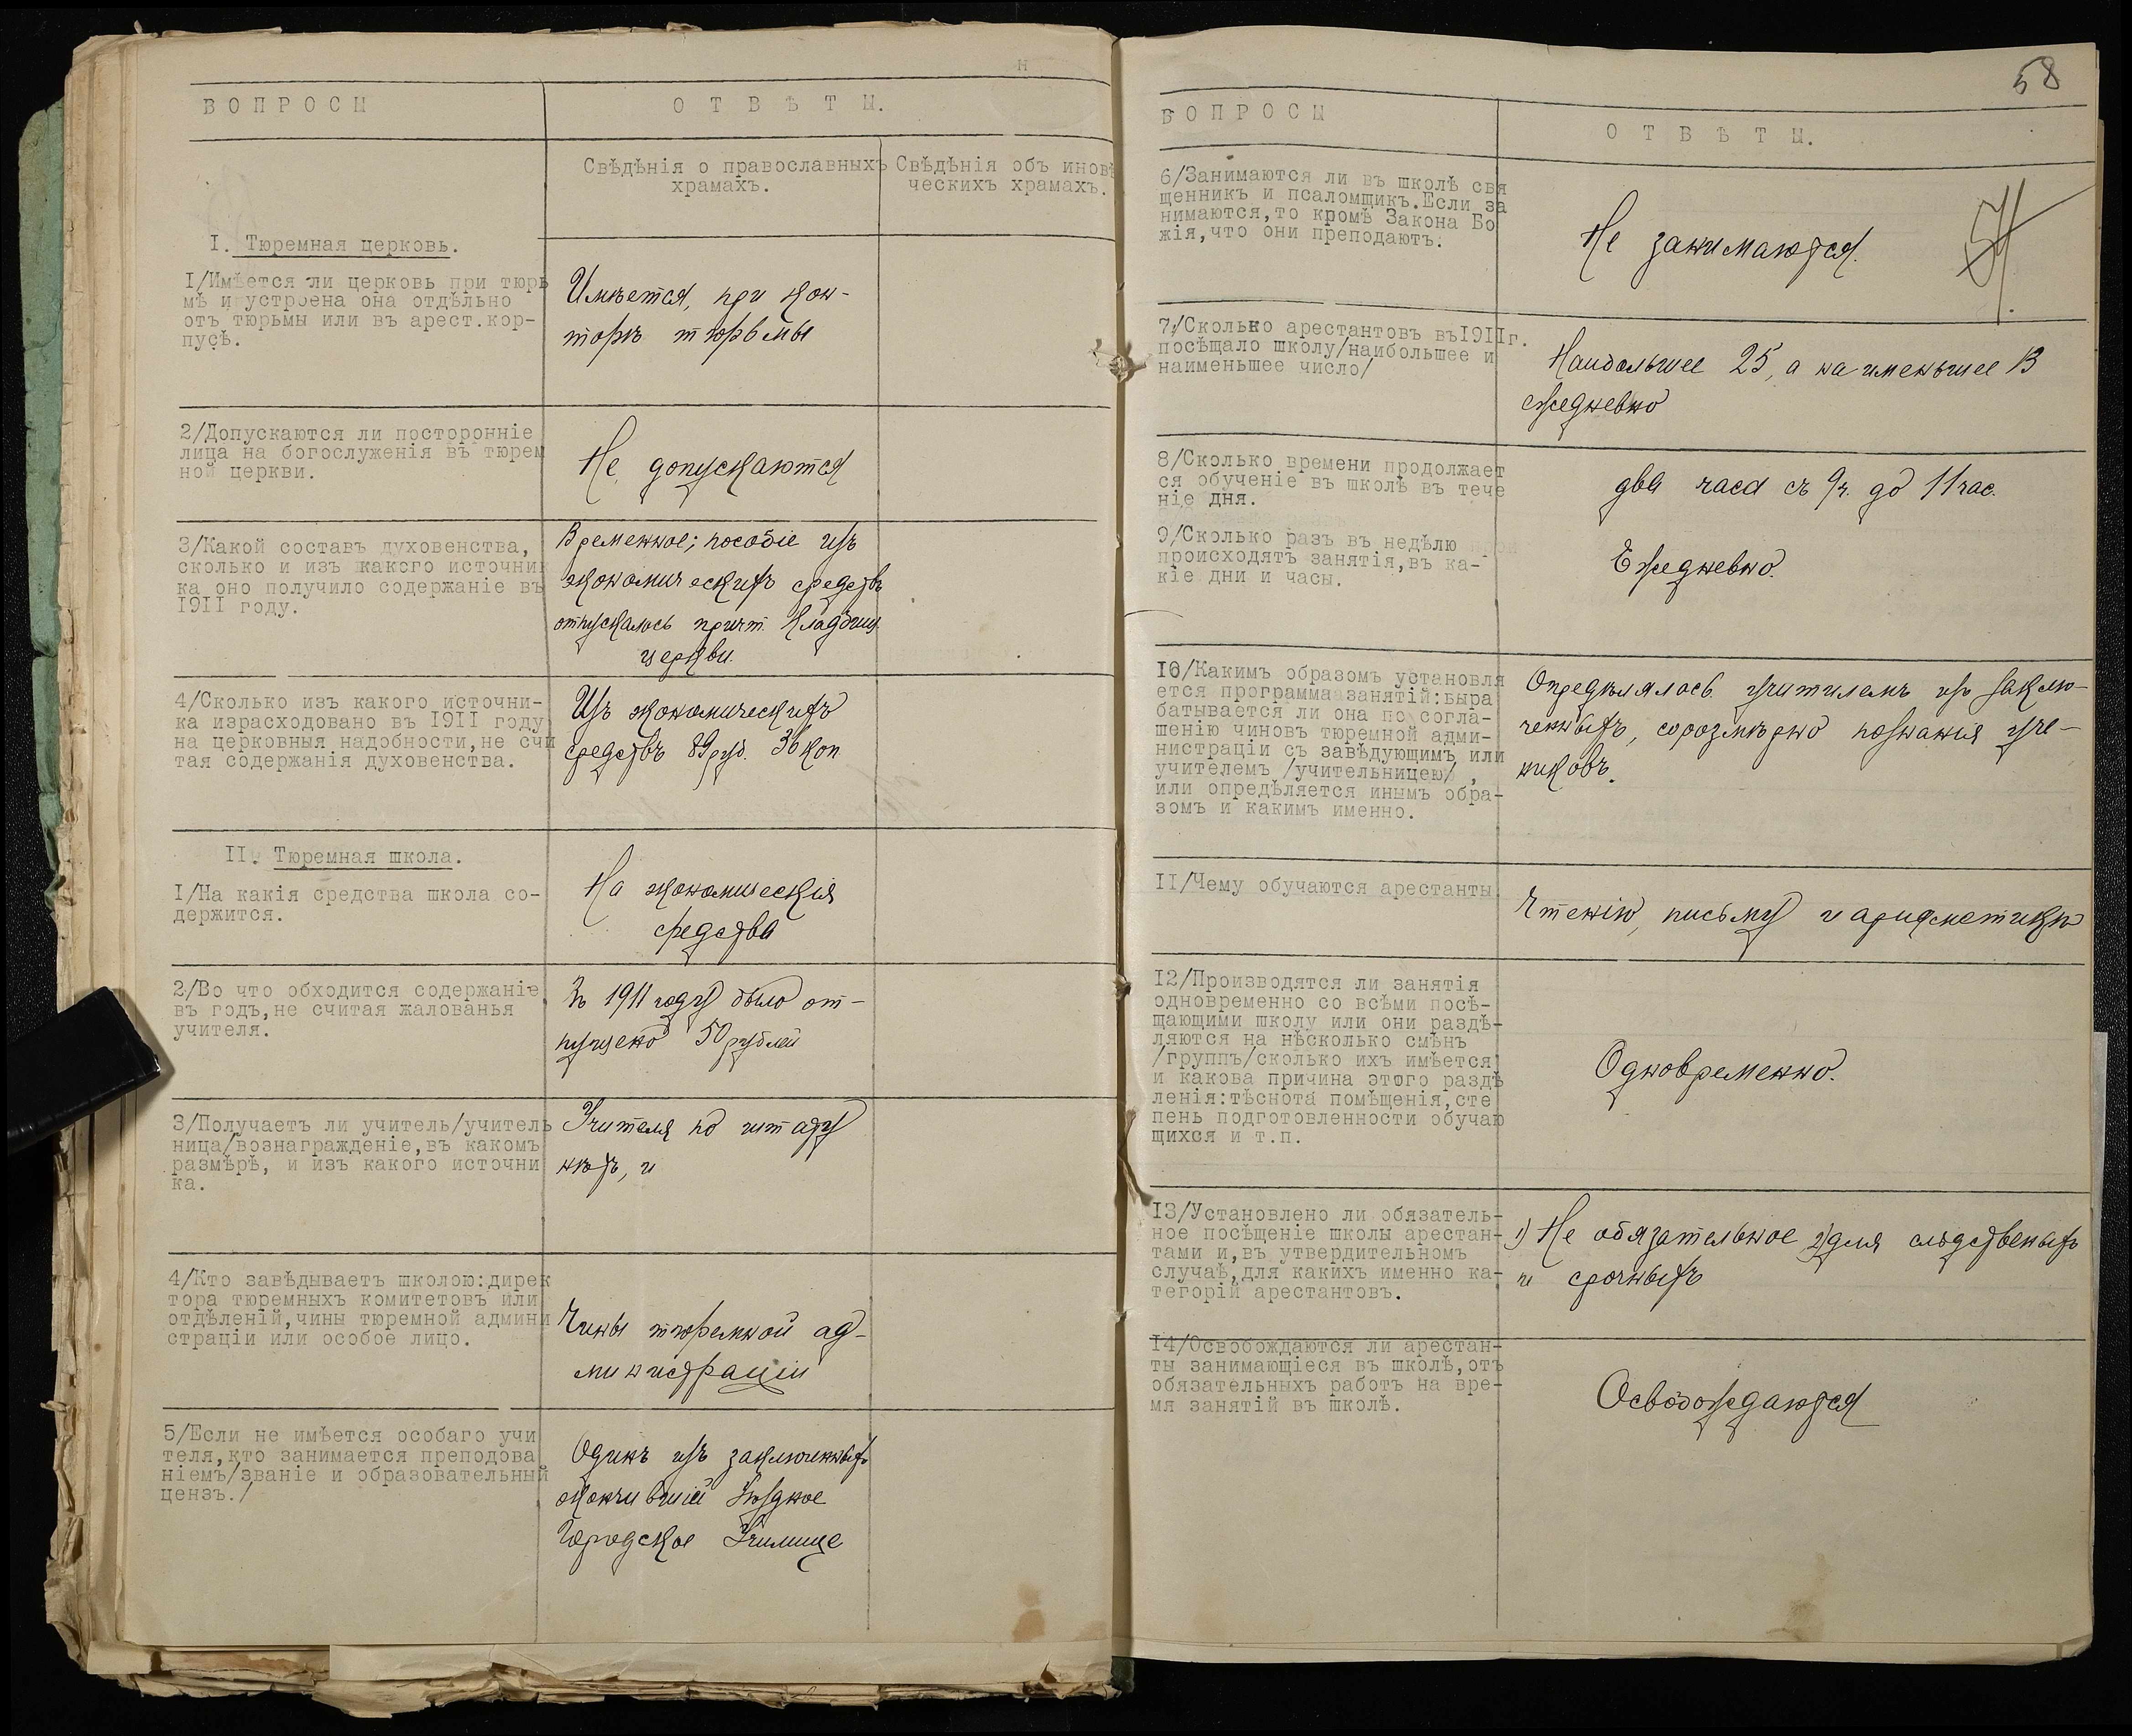 ВОПРОСЫ
ОТВѢТЫ.
Свѣдѣнія о православныхъ
храмахъ.
Свѣдѣнія объ иновѣ
ческихъ храмахъ.
I. Тюремная церковь.
I/Имѣется ли церковь при тюрь
мѣ и устроена она отдѣльно
отъ тюрьмы или въ арест.кор-
пусѣ.
Имѣется, при кон-
торѣ тюрьмы
2/Допускаются ли посторонніе
лица на богослуженія въ тюрем
ной церкви.
Не допускаются
3/Какой составъ духовенства,
сколько и изъ какого источни
ка оно получило содержаніе въ
I9II году.
Временное; пособіе изъ
экономическихъ средствъ
отпускалось причт. Кладбищ.
церкви.
4/Сколько изъ какого источни-
ка израсходовано въ I9II году
на церковныя надобности,не счи
тая содержанія духовенства.
Изъ экономическихъ
средствъ 89 руб. 36 коп
II. Тюремная школа.
I/На какія средства школа со-
держится.
На экономическія
средства
2/Во что обходится содержаніе
въ годъ,не считая жалованья
учителя.
Въ 1911 году было от-
пущено 50 рублей
3/Получаетъ ли учитель/учитель
ница/вознагражденіе,въ какомъ
размѣрѣ, и изъ какого источни
ка.
Учителя по штату
нѣтъ, и
4/Кто завѣдываетъ школою:дирек
тора тюремныхъ комитетовъ или
отдѣленій,чины тюремной админи
страціи или особое лицо.
Чины тюремной ад-
министраціи
5/Если не имѣется особаго учи
теля,кто занимается преподова
ніемъ/званіе и образовательный
цензъ./
Одинъ изъ заключенныхъ
окончившій Уѣздное
Городское Училище
58
ВОПРОСЫ
ОТВѢТЫ.
6/Занимаются ли въ школѣ свя
щенникъ и псаломщикъ.Если за
нимаются,то кромѣ Закона Бо
жія,что они преподаютъ.
Не занимаются.
7/Сколько арестантовъ въ I9IIг.
посѣщало школу/наибольшее и
наименьшее число/
Наибольшее 25, а наименьшее 13
ежедневно
8/Сколько времени продолжает
ся обученіе въ школѣ въ тече
ніе дня.
два часа съ 9 ч. до 11 час.
9/Сколько разъ въ недѣлю
происходятъ занятія,въ ка-
кіе дни и часы.
Ежедневно.
I0/Какимъ образомъ установля
ется программа занятій:выра
батывается ли она по согла-
шенію чиновъ тюремной адми-
нистраціи съ завѣдующимъ или
учителемъ /учительницею/ ,
или опредѣляется инымъ обра-
зомъ и какимъ именно.
Опредѣлялась учителемъ изъ заклю-
ченныхъ, соразмѣрно познанія уче-
никовъ.
II/Чему обучаются арестанты
Чтенію, письму и арифметикѣ
I2/Производятся ли занятія
одновременно со всѣми посѣ-
щающими школу или они раздѣ-
ляются на нѣсколько смѣнъ
/группъ/сколько ихъ имѣется
и какова причина этого раздѣ
ленія:тѣснота помѣщенія,сте
пень подготовленности обучаю
щихся и т.п.
Одновременно.
I3/Установлено ли обязатель-
ное посѣщеніе школы арестан-
тами и,въ утвердительномъ
случаѣ,для какихъ именно ка-
тегорій арестантовъ.
1) Не обязательное 2) для слѣдственыхъ
и срочныхъ
I4/Освобождаются ли арестан-
ты занимающіеся въ школѣ,отъ
обязательныхъ работъ на вре-
мя занятій въ школѣ.
Освобождаются